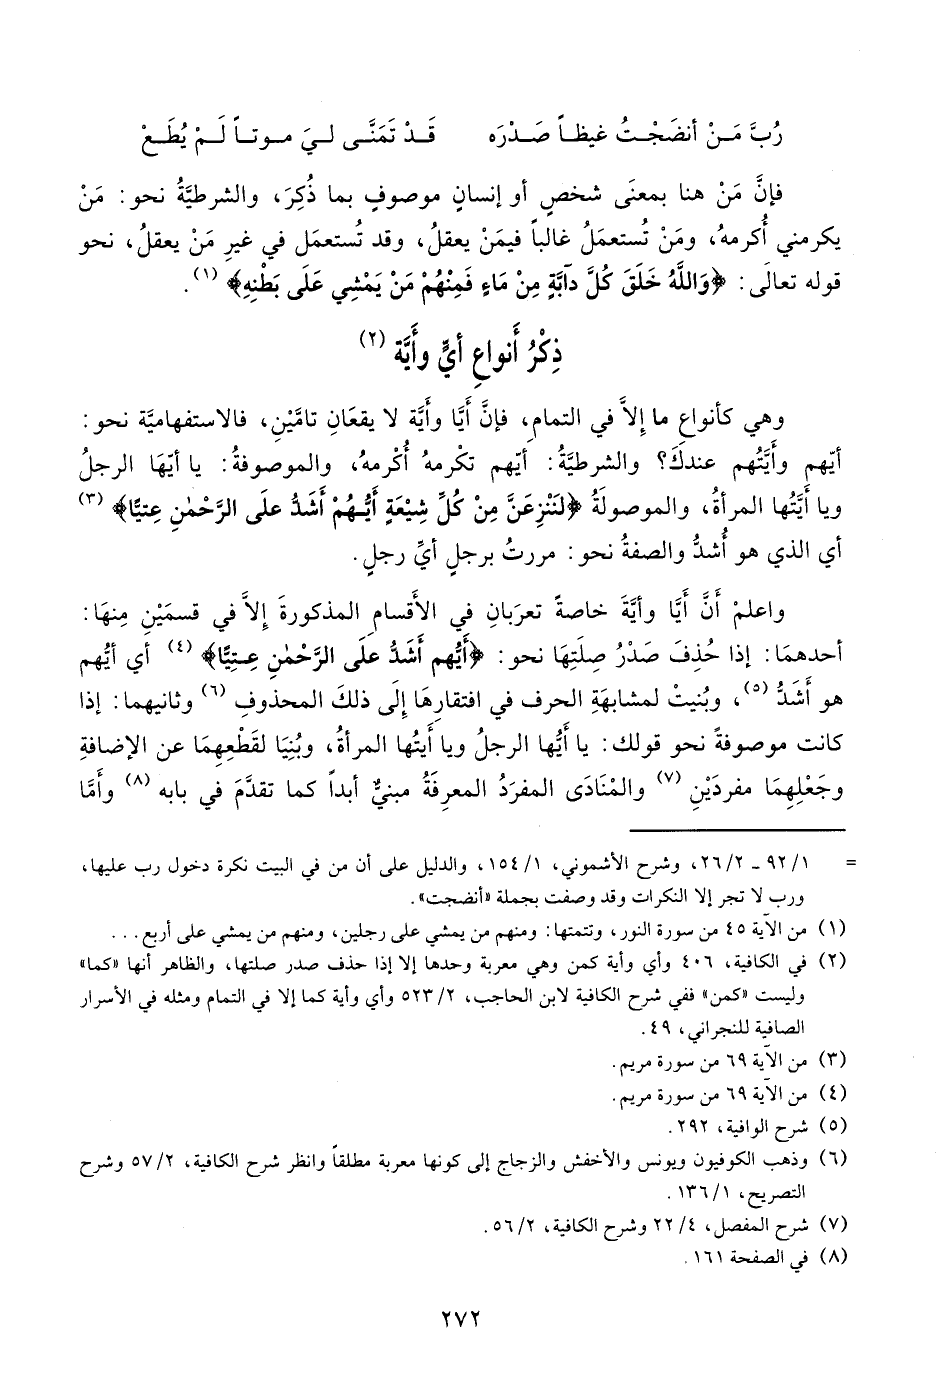 رُبَّ مَنْ أنضَجْتُ غيظاً صَدْرَه قَدْ تَمَنَّى ليَ موتاً لَمْ يُطَعْ
فإنَّ مَنْ هنا بمعنَى شخصٍ أو إنسانٍ موصوفٍ بما ذُكِرَ، والشرطيَّةُ نحو: مَنْ
يكرمني أُكرمهُ، ومَنْ تُستعمَلُ غالباً فيمَنْ يعقلُ، وقد تُستعمَل في غيرِ مَنْ يعقلُ، نحو
قوله تعالَى: ﴿وَاللَّهُ خَلَقَ كُلَّ دآبَّةٍ مِنْ مَاءٍ فَمِنْهُمْ مَنْ يَمْشِي عَلَى بَطْنِهِ﴾ (١).
ذِكْرُ أَنواعِ أيٍّ وأَيَّة (٢)
وهي كأنواعِ ما إلاَّ في التمامِ، فإنَّ أيَّا وأيَّة لا يقعَانِ تامَّيْنِ، فالاستفهاميَّة نحو:
أيّهم وأيَّتُهم عندكَ؟ والشرطيَّةُ: أيّهم تكْرمهُ أُكْرمهُ، والموصوفةُ: يا أيّهَا الرجلُ
ويا أَيَّتُها المرأةُ، والموصولَةُ ﴿لَنَنْزِعَنَّ مِنْ كُلِّ شِيْعَةٍ أَيُّهُمْ أَشَدُّ علَى الرَّحْمٰنِ عِتيًّا﴾ (٣)
أي الذي هو أَشدُّ والصفةُ نحو: مررتُ برجلٍ أيِّ رجلٍ.
واعلمْ أَنَّ أيَّا وأيَّةَ خاصةً تعرَبانِ في الأقسامِ المذكورةَ إلاَّ في قسمَيْنِ مِنهَا:
أحدهمَا: إذا حُذِفَ صَدْرُ صِلَتِهَا نحو: ﴿أَيُّهم أَشَدُّ علَى الرَّحْمٰنِ عِتِيًّا﴾ (٤) أي أيُّهم
هو أَشَدُّ (٥)، وبُنيتْ لمشابهَةِ الحرف في افتقارِهَا إلَى ذلكَ المحذوفِ (٦) وثانيهما: إذا
كانت موصوفةً نحو قولك: يا أَيُّها الرجلُ ويا أَيتُها المرأةُ، وبُنِيَا لقَطْعِهِمَا عن الإضافةِ
وجَعْلِهِمَا مفردَيْنِ (٧) والمْنَادَى المفرَدُ المعرفَةُ مبنيٌّ أبداً كما تقدَّمَ في بابه (٨) وأمَّا
= ١/ ٩٢ ـ ٢/ ٢٦، وشرح الأشموني، ١/ ١٥٤، والدليل على أن من في البيت نكرة دخول رب عليها،
ورب لا تجر إلا النكرات وقد وصفت بجملة «أنضجت».
(١) من الآية ٤٥ من سورة النور، وتتمتها: ومنهم من يمشي على رجلين، ومنهم من يمشي على أربع...
(٢) في الكافية، ٤٠٦ وأي وأية كمن وهي معربة وحدها إلا إذا حذف صدر صلتها، والظاهر أنها «كما»
وليست «كمن» ففي شرح الكافية لابن الحاجب، ٢/ ٥٢٣ وأي وأية كما إلا في التمام ومثله في الأسرار
الصافية للنجراني، ٤٩.
(٣) من الآية ٦٩ من سورة مريم.
(٤) من الآية ٦٩ من سورة مريم.
(٥) شرح الوافية، ٢٩٢.
(٦) وذهب الكوفيون ويونس والأخفش والزجاج إلى كونها معربة مطلقاً وانظر شرح الكافية، ٢/ ٥٧ وشرح
التصريح، ١/ ١٣٦.
(٧) شرح المفصل، ٤/ ٢٢ وشرح الكافية، ٢/ ٥٦.
(٨) في الصفحة ١٦١.
٢٧٢